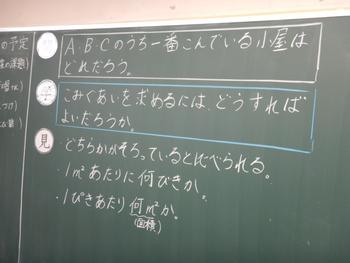 の予定
A・B・Cのうち一番こんでいる小屋は
どれだろう。
こみぐあいを求めるには、どうすれば
よいだろうか。
見
・どちらかがそろっているとくらべられる。
・1m²あたりに何びきか。
・1ぴきあたり何m²か。
(面積)